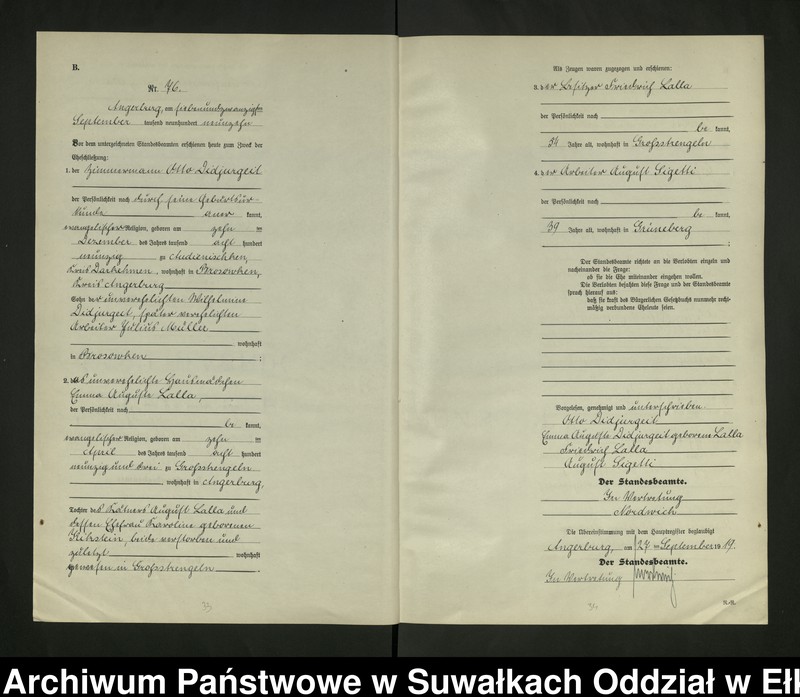 B.
Nr. 76.
Angerburg, am siebenundzwanzigsten
September tausend neunhundert neunzehn
Vor dem unterzeichneten Standesbeamten erschienen heute zum Zweck der
Eheschließung:
1. der Zimmermann Otto Didjurgeit
der Persönlichkeit nach durch seine Geburtsur-
kunde aner kannt,
evangelischer Religion, geboren am zehn ten
Dezember des Jahres tausend acht hundert
neunzig zu Audinischken,
Kreis Darkehmen, wohnhaft in Brosowken,
Kreis Angerburg
Sohn der unverehelichten Wilhelmine
Didjurgeit, später verehelichten
Arbeiter Julius Müller
wohnhaft
in Brosowken ;
2. das unverehelichte Hausmädchen
Emma Auguste Lalla,
der Persönlichkeit nach
be kannt,
evangelischer Religion, geboren am zehn ten
April des Jahres tausend acht hundert
neunzig und drei zu Grossstrengeln
, wohnhaft in Angerburg,
Tochter des Kätners August Lalla und
dessen Ehefrau Karoline geborenen
beide verstorben und
zuletzt wohnhaft
gewesen in Grossstrengeln .
Als Zeugen waren zugezogen und erschienen:
3. der Besitzer Friedrich Lalla
der Persönlichkeit nach
be kannt,
34 Jahre alt, wohnhaft in Grossstrengeln
4. der Arbeiter August Sigetti
der Persönlichkeit nach
be kannt,
39 Jahre alt, wohnhaft in Grüneberg
;
Der Standesbeamte richtete an die Verlobten einzeln und
nacheinander die Frage:
ob sie die Ehe miteinander eingehen wollen.
Die Verlobten bejahten diese Frage und der Standesbeamte
sprach hierauf aus:
daß sie kraft des Bürgerlichen Gesetzbuchs nunmehr recht-
mäßig verbundene Eheleute seien.
Vorgelesen, genehmigt und unterschrieben.
Otto Didjurgeit
Emma Auguste Didjurgeit geborene Lalla
Friedrich Lalla
August Sigetti
Der Standesbeamte.
In Vertretung
Nordwich
Die Übereinstimmung mit dem Hauptregister beglaubigt
Angerburg, am 27 ten September 1919.
Der Standesbeamte.
In Vertretung
Archiwum Państwowe w Suwałkach Oddział w Ełk